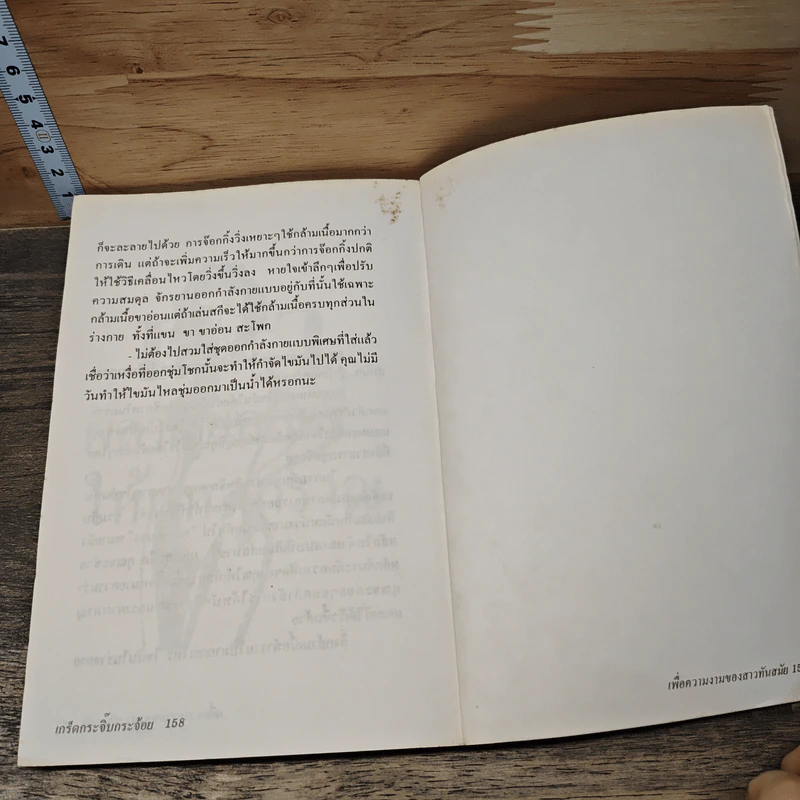 ก็จะละลายไปด้วย การจ๊อกกิ้งวิ่งเหยาะๆใช้กล้ามเนื้อมากกว่า
การเดิน แต่ถ้าจะเพิ่มความเร็วให้มากขึ้นกว่าการจ๊อกกิ้งปกติ
ให้ใช้วิธีเคลื่อนไหวโดยวิ่งขึ้นวิ่งลง หายใจเข้าลึกๆเพื่อปรับ
ความสมดุล จักรยานออกกำลังกายแบบอยู่กับที่นั้นใช้เฉพาะ
กล้ามเนื้อขาอ่อนแต่ถ้าเล่นสกีจะได้ใช้กล้ามเนื้อครบทุกส่วนใน
ร่างกาย ทั้งที่แขน ขา ขาอ่อน สะโพก
- ไม่ต้องไปสวมใส่ชุดออกกำลังกายแบบพิเศษที่ใส่แล้ว
เชื่อว่าเหงื่อที่ออกชุ่มโชกนั้นจะทำให้กำจัดไขมันไปได้ คุณไม่มี
วันทำให้ไขมันไหลชุ่มออกมาเป็นน้ำได้หรอกนะ
เกร็ดกระจิ๊บกระจ้อย 158
เพื่อความงามของสาวทันสมัย 15
7 6 5 4 3 2 1